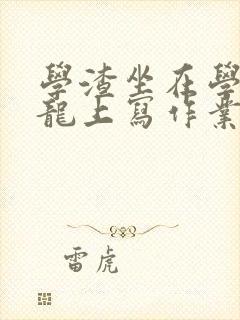 學渣坐在學
龍上寫作業
雷虎